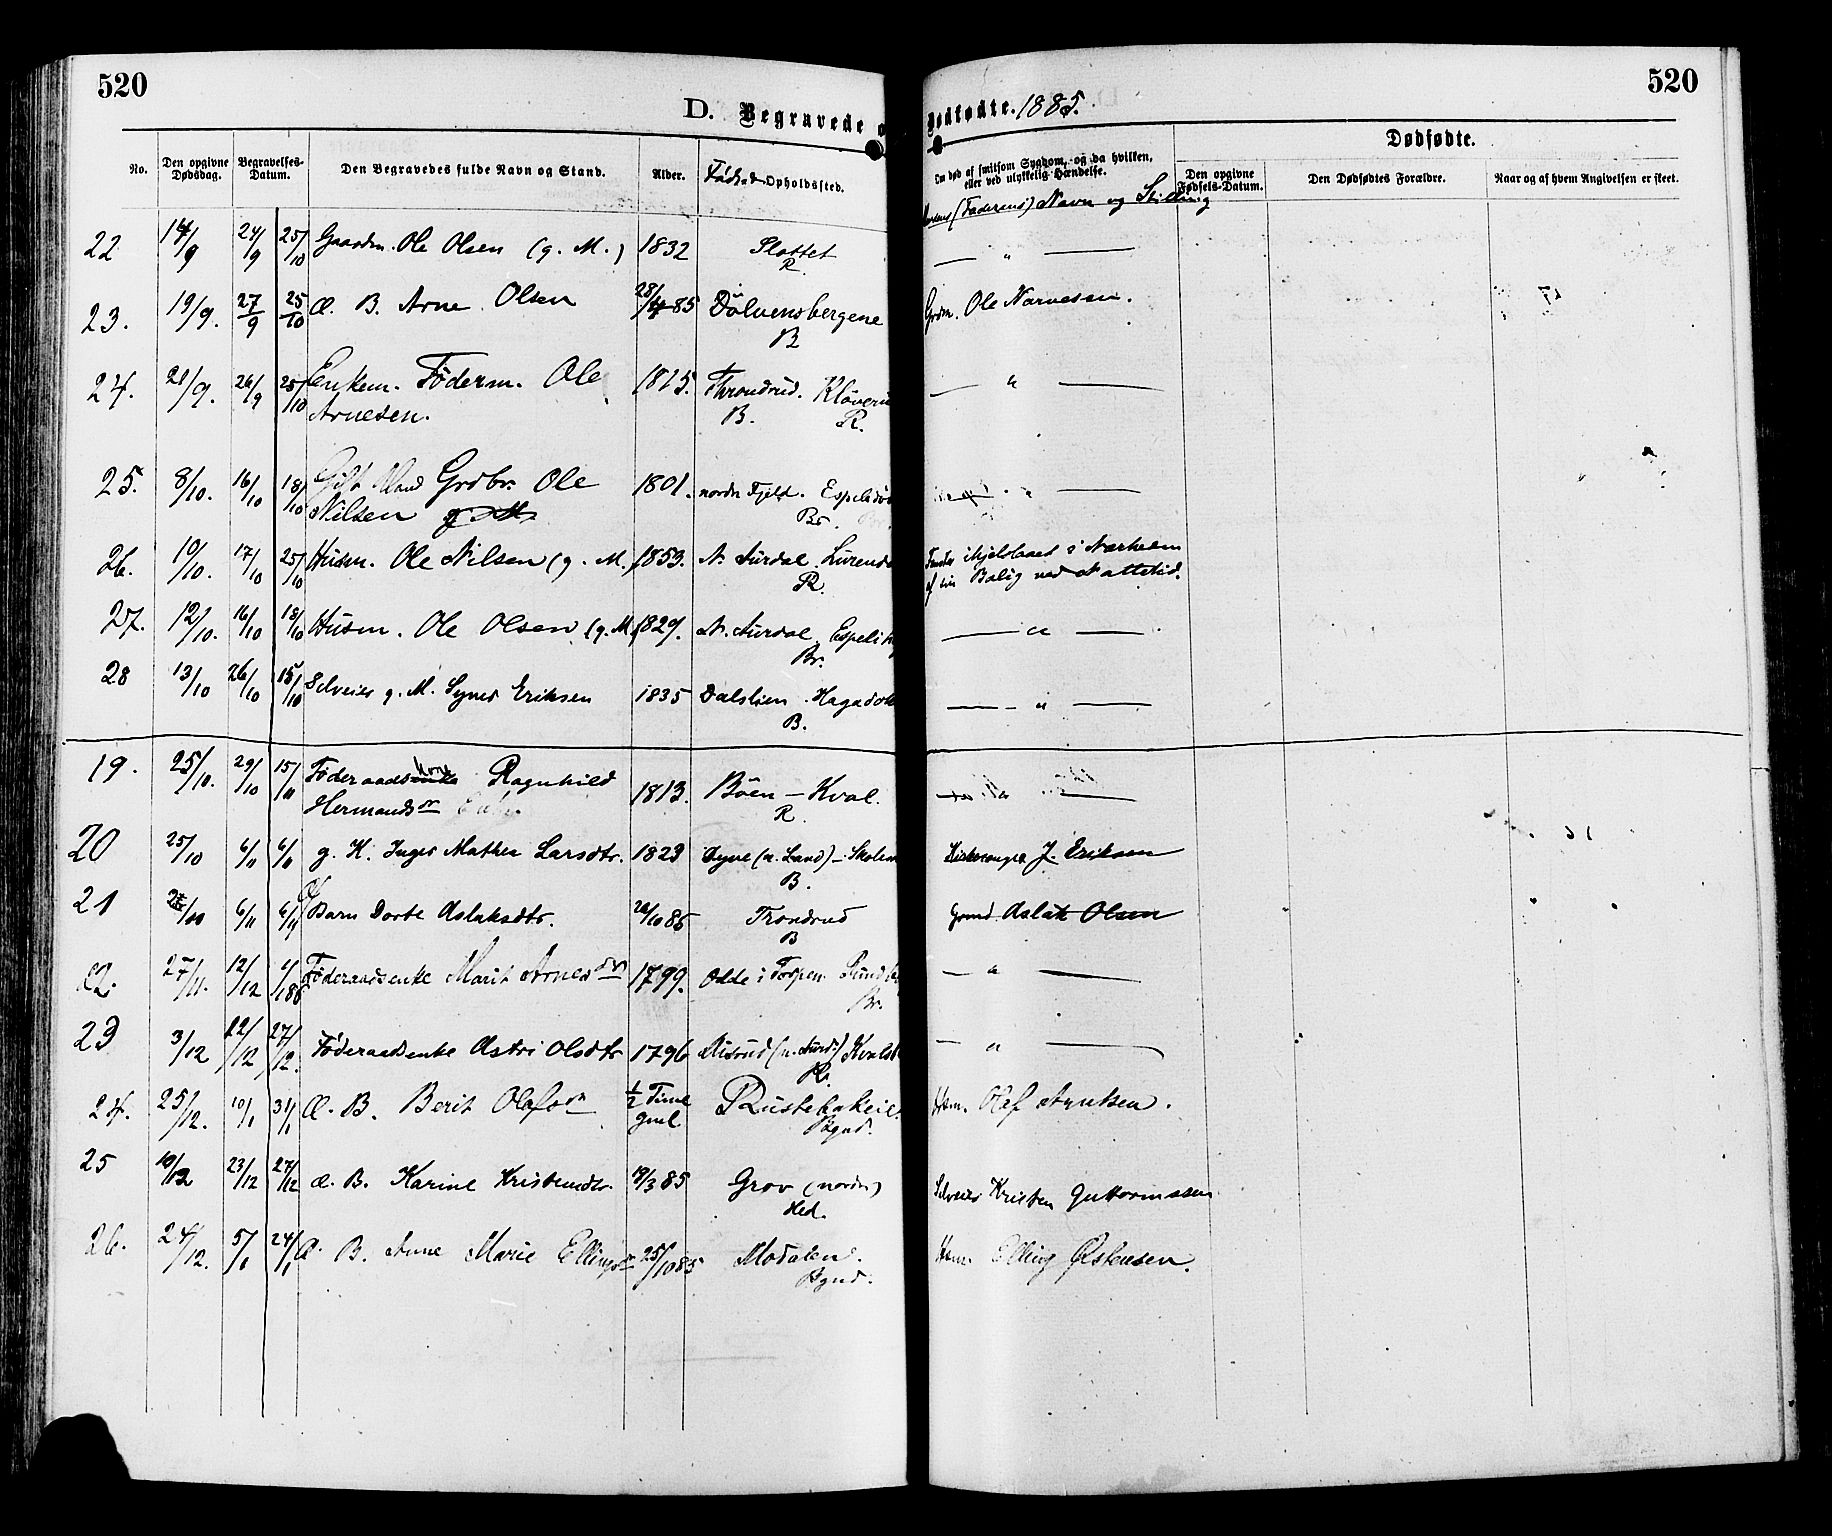 520
520
D. Begravede o
Dødfødte. 1885.
No.
Den opgivne Dødsdag.
Begravelses-Datum.
Den Begravedes fulde Navn og Stand.
Alder.
Føde- Opholdssted.
Om død af smitsom Sygdom, og da hvilken,
eller ved ulykkelig Hændelse.
(Faderens) Navn og Stilling
Dødfødte.
Den opgivne Fødsels-Datum.
Den Dødfødtes Forældre.
Naar og af hvem Angivelsen er skeet.
22 14/9 24/9 25/10 Gaardm. Ole Olsen (g. M.) 1832 Slottet — " —
R.
23. 19/9. 27/9 25/10 Æ. B. Arne Olsen 28/4 85 Dölvensbergene Grdm. Ole Narvesen.
B
24. 21/9. 26/9 25/10 Enkem. Föderm. Ole 1815. Throndrud. — " —
Arnesen. B. R.
25. 8/10. 16/10 18/10 Gift Mand Grdbr. Ole 1801. nordre Fjeld. — " —
Nilsen g. M. Br.
26. 10/10. 17/10 25/10 Husm. Ole Nilsen (g. M.) 1853. N. Aurdal ihjelslaaet i Nærheden
R. af sin Bolig ved Nattetid.
27. 12/10. 16/10 18/10 Husm. Ole Olsen (g. M.) 1829. N. Aurdal — " —
Br.
28 13/10 26/10 15/10 Selveier g. M. Syver Eriksen 1835 Dalslien — " —
B.
19. 25/10. 29/10 15/11 Föderaadskone Ragnhild
Hermandsdr 1813. Böen — Kval. — " —
R.
20 25/10 6/11 6/11 g. K. Inger Mathea Larsdtr. 1823 Dyve (n. Land) Kirkesanger J. Eriksen
B.
21 6/11 6/11 Barn Dorte Aslaksdtr. 26/10 85 Trondrud Grmd. Aslak Olsen
B
22. 27/11. 12/12 Föderaadsenke Marit Arnesdtr 1799. Odde i Torpen — " —
Br.
23 3/12 22/12 27/12. Föderaadsenke Astri Olsdtr 1796 (n. Aurd.) — " —
R.
24. 25/12. 10/1 31/1 Æ. B. Berit Olafsdr 1/2 Time Hsm. Olaf
gml. Bgnd.
25 10/12 23/12 27/12 Æ. B. Karine Kristensdtr. 19/3 85 Grov (nordre) Selveier Kristen Guttormssen
Hed.
26. 24/12. 5/1 24/1 Æ. B. Anne Marie Ellingsdr 25/10 85 Modalen. Hsm. Elling Østensen.
Bgnd.